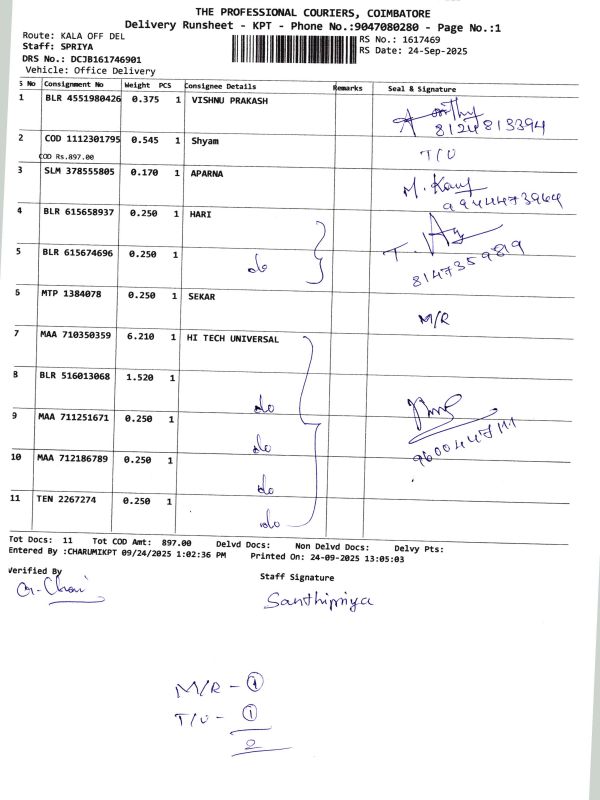 THE PROFESSIONAL COURIERS, COIMBATORE
Delivery Runsheet - KPT - Phone No.:9047080280 - Page No.:1
Route: KALA OFF DEL
RS No.: 1617469
Staff: SPRIYA
RS Date: 24-Sep-2025
DRS No.: DCJB161746901
Vehicle: Office Delivery
S No Consignment No Weight PCS Consignee Details Remarks Seal & Signature
1 BLR 4551980426 0.375 1 VISHNU PRAKASH
8124813394
2 COD 1112301795 0.545 1 Shyam T/U
COD Rs.897.00
3 SLM 378555805 0.170 1 APARNA
9944473969
4 BLR 615658937 0.250 1 HARI
5 BLR 615674696 0.250 1 do
8147359819
6 MTP 1384078 0.250 1 SEKAR M/R
7 MAA 710350359 6.210 1 HI TECH UNIVERSAL
8 BLR 516013068 1.520 1 do
9 MAA 711251671 0.250 1 do
10 MAA 712186789 0.250 1 do
11 TEN 2267274 0.250 1 do
Tot Docs: 11 Tot COD Amt: 897.00 Delvd Docs: Non Delvd Docs: Delvy Pts:
Entered By :CHARUMIKPT 09/24/2025 1:02:36 PM Printed On: 24-09-2025 13:05:03
Verified By
Staff Signature
Santhipriya
M/R - 1
T/U - 1
2